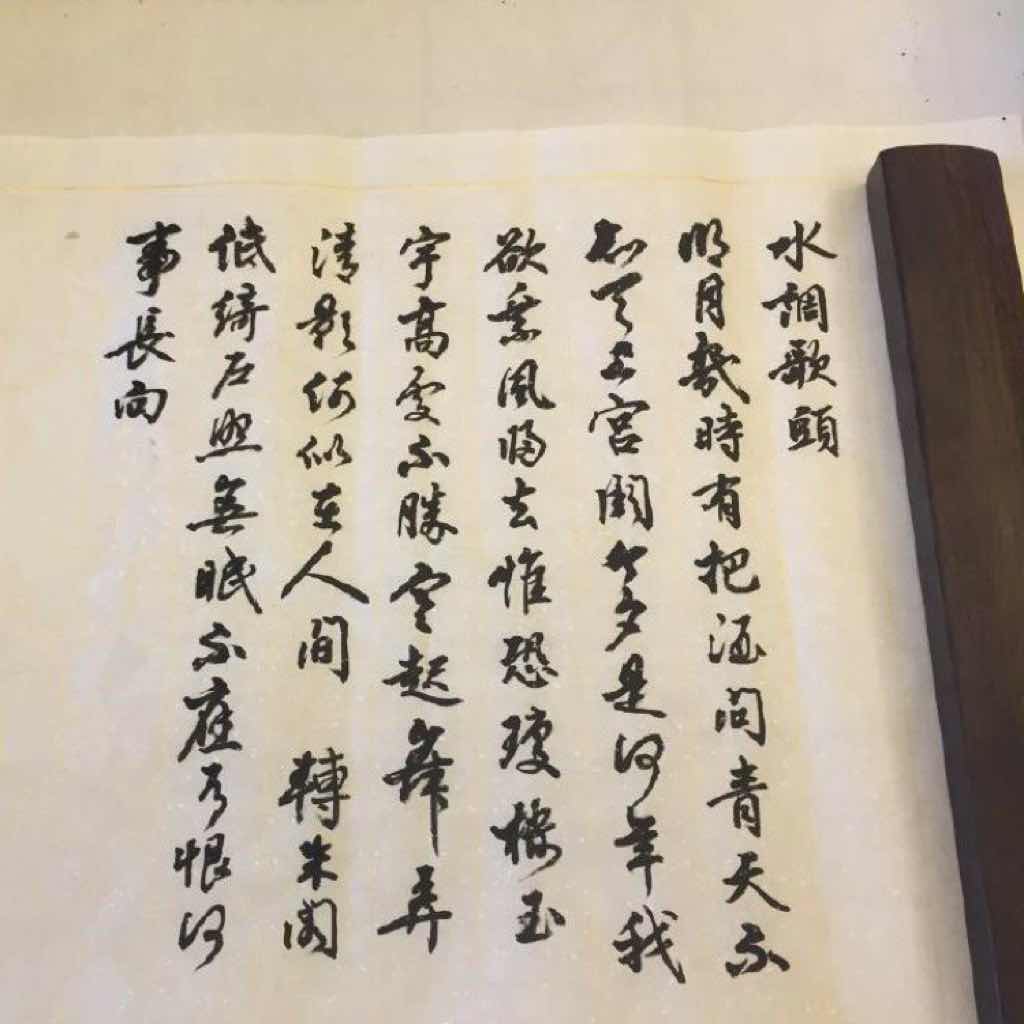 水調歌頭
明月幾時有把酒問青天不
知天上宮闕今夕是何年我
欲乘風歸去惟恐瓊樓玉
宇高處不勝寒起舞弄
清影何似在人間 轉朱閣
低綺戶照無眠不應有恨何
事長向